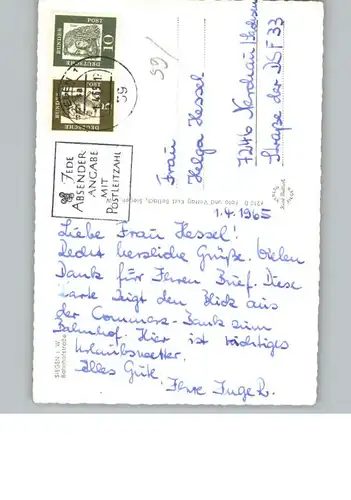 10
DEUTSCHE
BUNDESPOST
5
DEUTSCHE
BUNDESPOST
59
59/
JEDE
ABSENDER-
ANGABE
MIT
POSTLEITZAHL
Frau
Helga Hessel
7246 Nerchau/Sachsen
Straße der DSF 33
1.4.1965
Liebe Frau Hessel!
Recht herzliche Grüße. Vielen
Dank für Ihren Brief. Diese
Karte zeigt den Blick aus
der Commerz-Bank zum
Bahnhof. Hier ist richtiges
Urlaubswetter.
Alles Gute.
Ihre Inge R.
SIEGEN i. W.
Bahnhofstraße
Foto und Verlag Kurt
Siegen